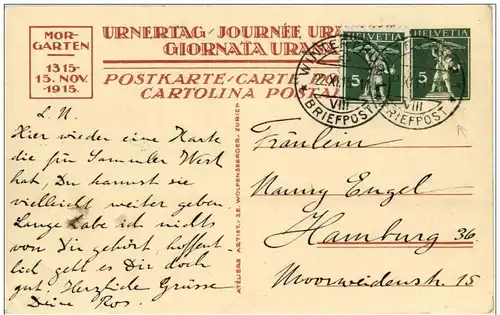 MOR-
GARTEN
1315-
15. NOV.
1915.
URNERTAG / JOURNÉE
GIORNATA
POSTKARTE / CARTE
CARTOLINA POSTAL
HELVETIA
5
HELVETIA
5
VIII
BRIEFPOST
VIII
BRIEFPOST
L. N.
Hier wieder eine Karte
die für Sammler Wert
hat, Du kannst sie
vielleicht weiter geben.
Lange habe ich nichts
von Dir gehört, hoffent
lich geht es Dir doch
gut. Herzliche Grüsse
Deine Ros.
ATELIERS ARTIST: J.E. WOLFENSBERGER, ZÜRICH
Fräulein
Nanny Engel
Hamburg 36.
Moorweidenstr. 15